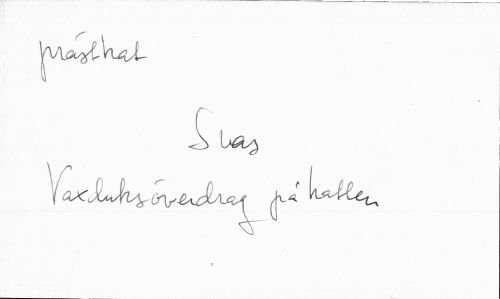 prästhat
Svas
Vaxduksöverdrag på hatten